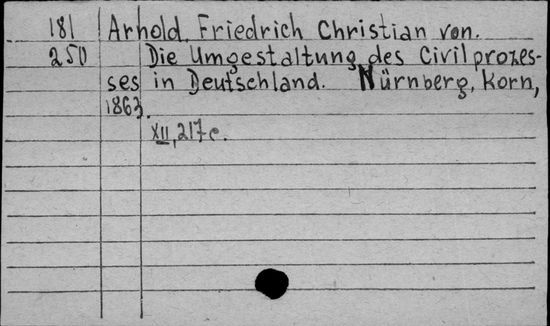 181 Arnold, Friedrich Christian von.
250 Die Umgestaltung des Civilprozes-
ses in Deutschland. Nürnberg, Korn,
1863.
XII, 217 c.